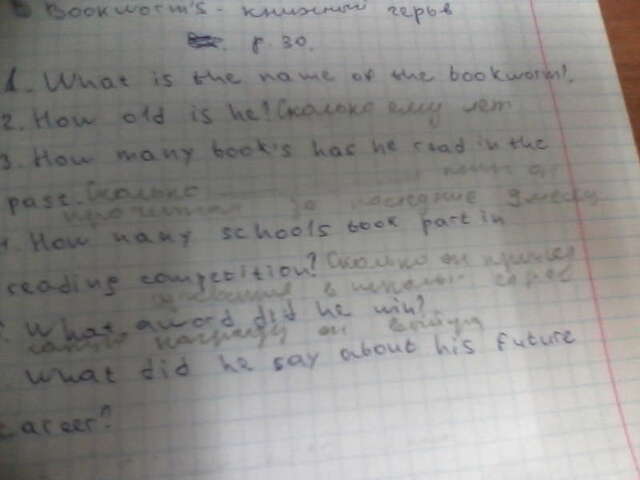 Bookworm's - книжный червь
p. 30.
1. What is the name of the bookworm?
2. How old is he? Сколько ему лет
3. How many book's has he read in the
past. Сколько книг он
прочитал за последние 9 месяц
. How many schools took part in
reading competition? Сколько он принял
в школы сорев
What aword did he win?
какую награду он выйграл
What did he say about his future
career?